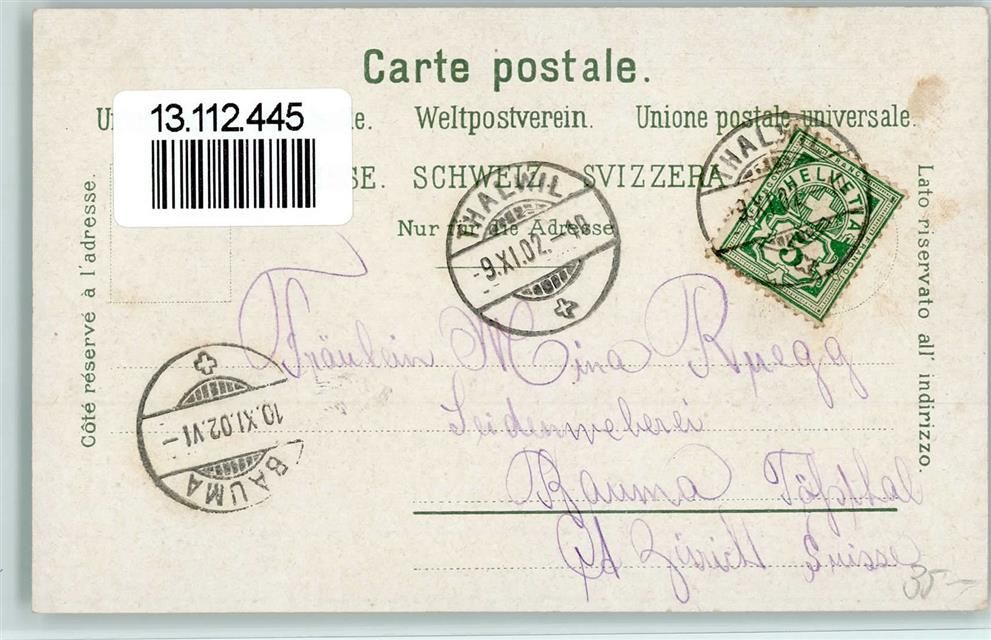 Carte postale.
13.112.445
Weltpostverein. Unione postale universale.
SCHWEIZ. SVIZZERA
Nur für die Adresse
Côté réservé à l'adresse.
Lato riservato all' indirizzo.
THALWIL
-9.XI.02.-10
THALWIL
9.XI.02
HELVETIA
FRANCO
5
BAUMA
10.XI.02.VI-
Fräulein Mina Ruegg
Seidenweberei
Bauma Tößthal
Ct Zürich Suisse
35-